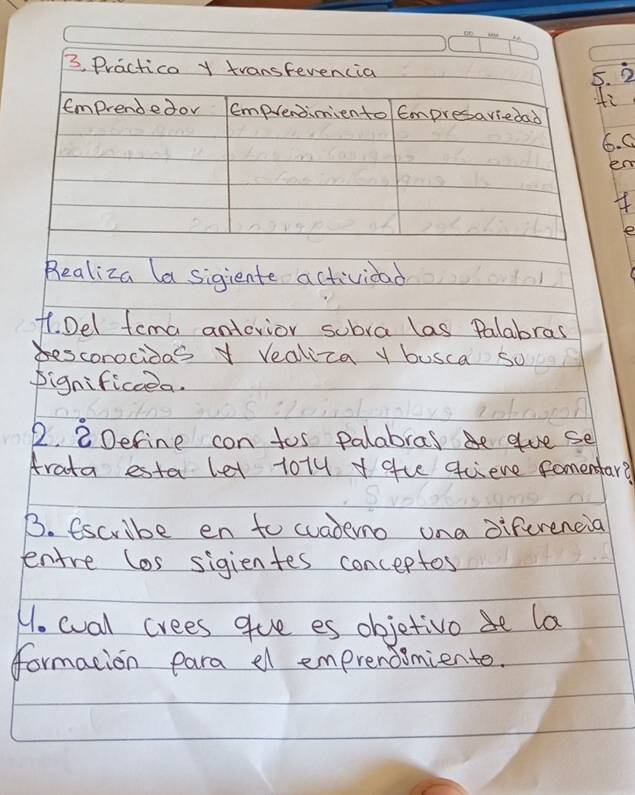 DD MM AA
3. Práctica y transferencia
Emprendedor Emprendimiento Empresariedad
Realiza la sigiente actividad
1. Del tema anterior subra las Palabras
desconocidas y realiza y busca su
significada.
2. ¿Define con tus palabras de que se
trata esta ley 1014 y que quiere fomentar?
3. Escribe en tu cuaderno una diferencia
entre los sigientes conceptos
4. cual crees que es objetivo de la
formación para el emprendimiento.
5. ¿
ti
6. C
em